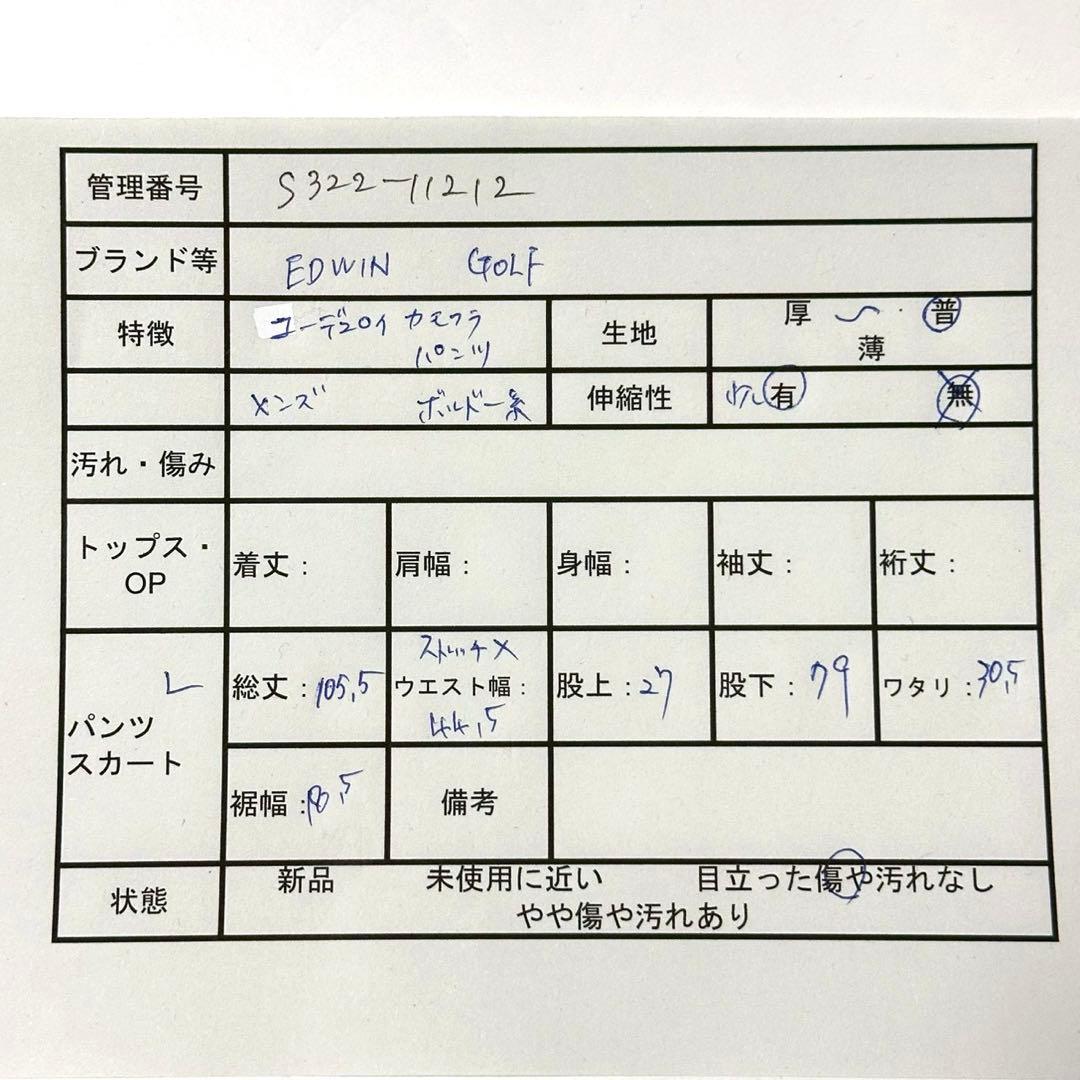 管理番号 S322-11212
ブランド等 EDWIN GOLF
特徴 コーデュロイ カモフラ 生地 厚 〜・普
パンツ 薄
メンズ ボルドー系 伸縮性 少し有 無
汚れ・傷み
トップス・OP 着丈： 肩幅： 身幅： 袖丈： 裄丈：
ストレッチ×
L 総丈：105,5 ウエスト幅： 股上：27 股下：79 ワタリ：30,5
44,5
パンツ
スカート
裾幅：18,5 備考
状態 新品 未使用に近い 目立った傷や汚れなし
やや傷や汚れあり